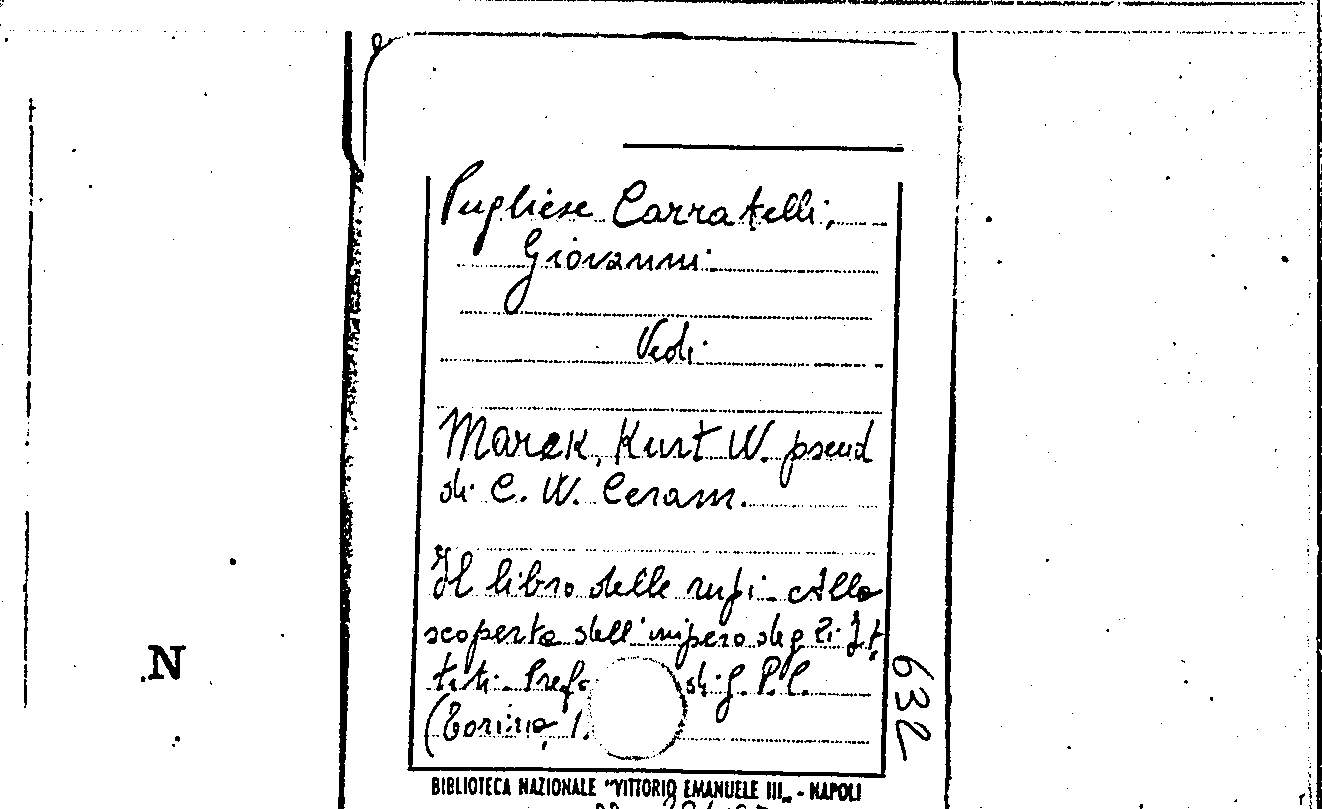 Pugliese Carratelli,
Giovanni
Vedi
Marek, Kurt W. pseud
di C. W. Ceram.
Il libro delle rupi - Alla
scoperta dell'impero degli It
titi. Pref di G. P. C.
(Torino, 1
632
N
BIBLIOTECA NAZIONALE "VITTORIO EMANUELE III„ - NAPOLI